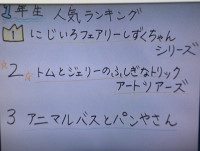 2年生 人気ランキング
1 にじいろフェアリーしずくちゃん
シリーズ
2 トムとジェリーのふしぎなトリック
アートツアーズ
3 アニマルバスとパンやさん